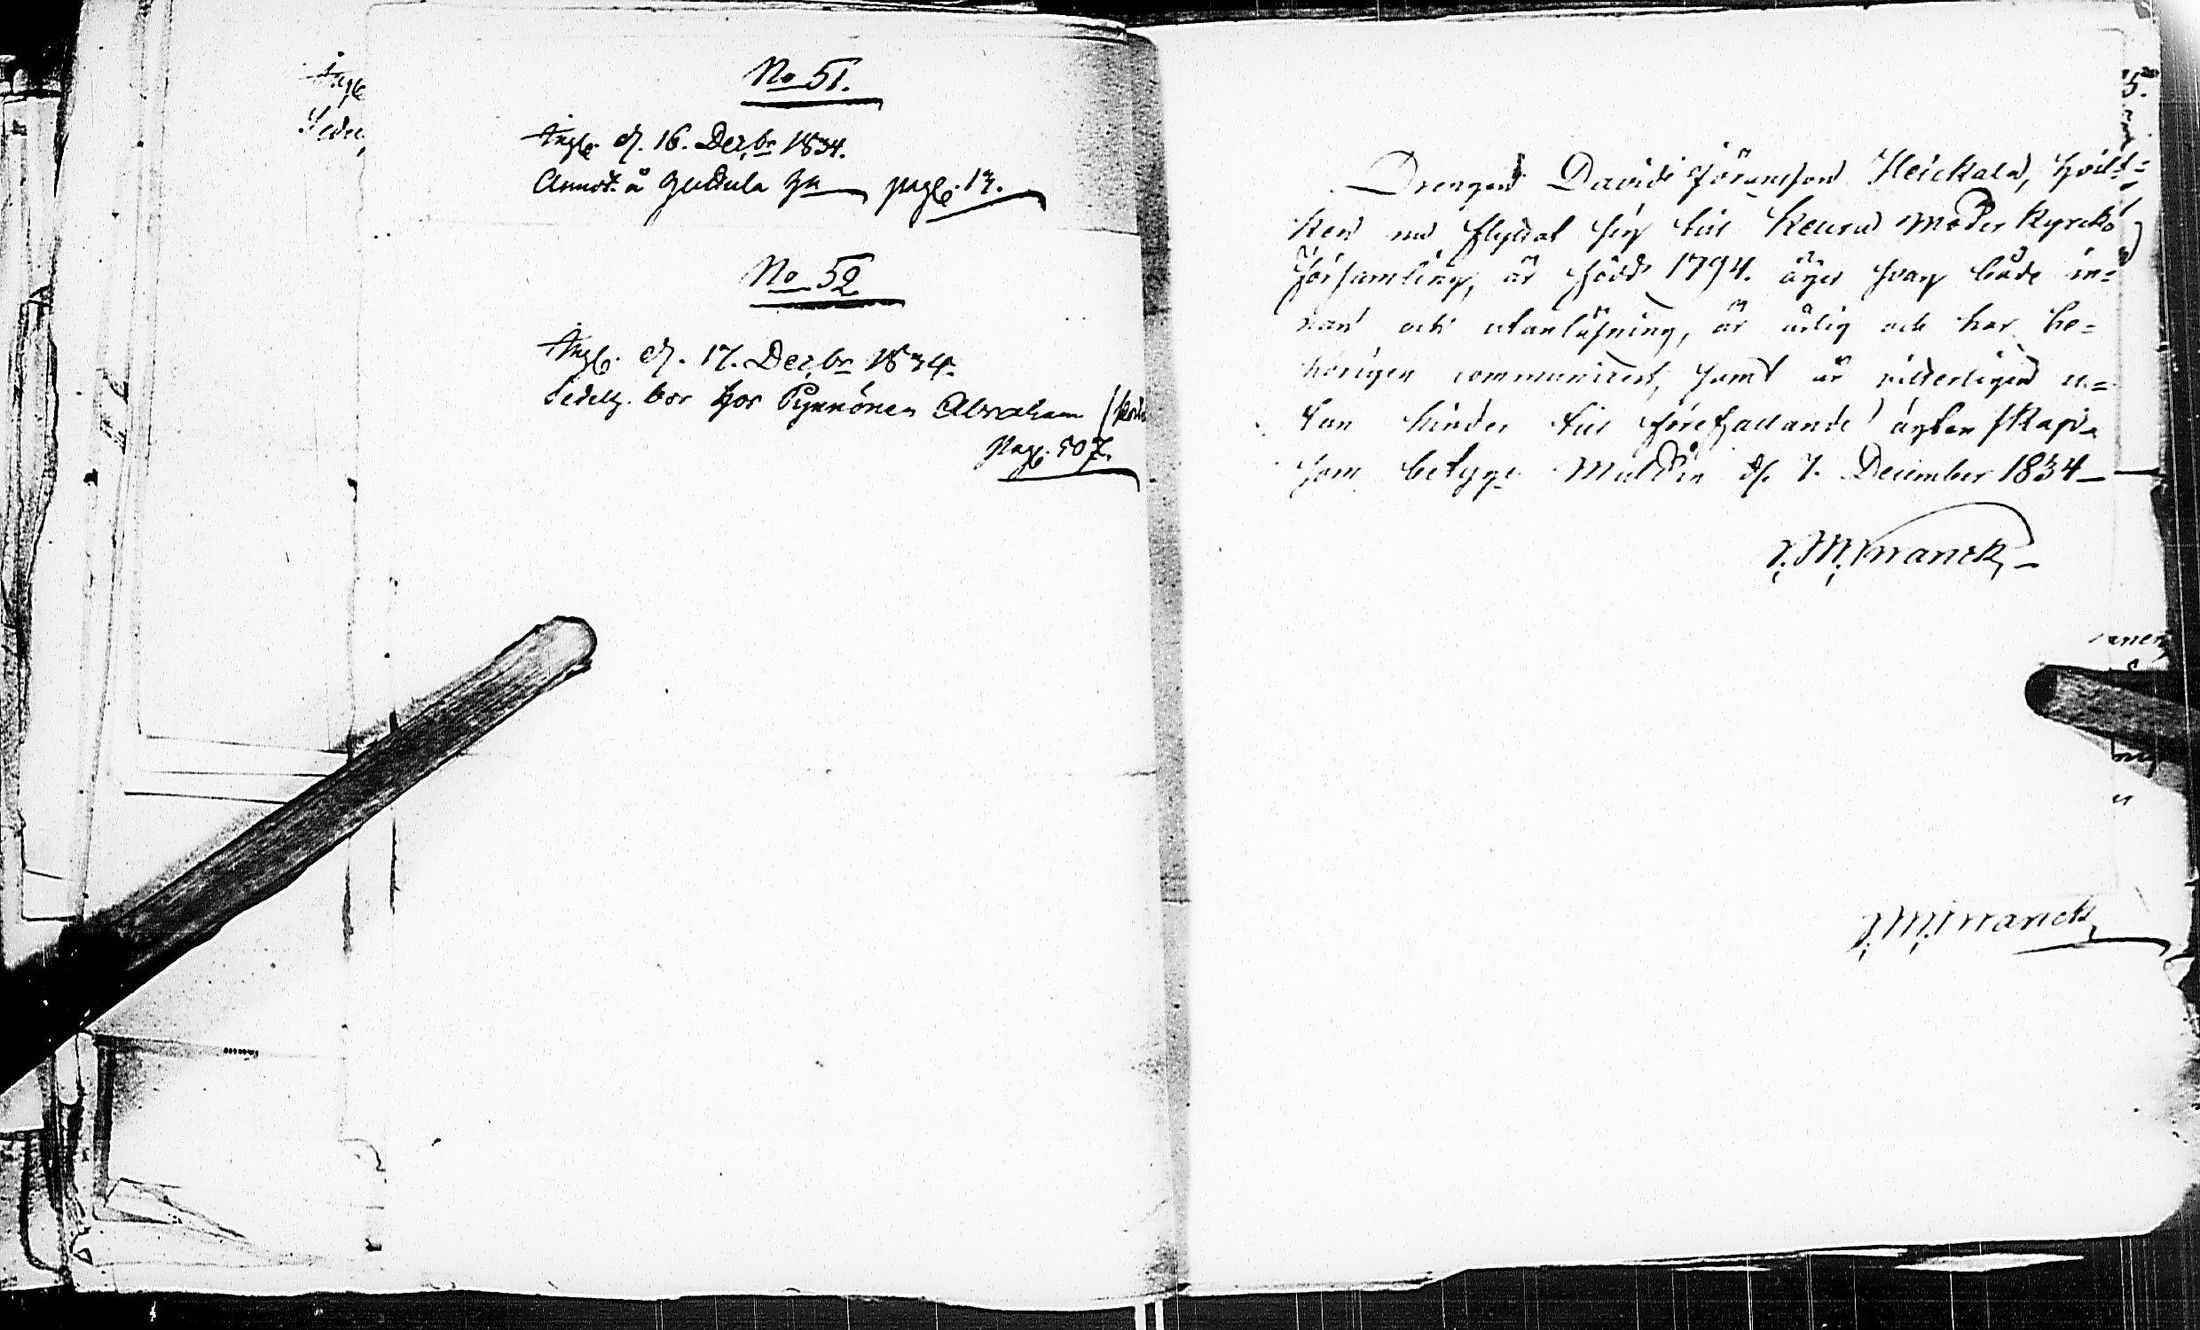 No 51.
Ingb. d. 16. Dezbr 1834.
Annot. å pag. 17.
No 52
Ingb. d. 17. Dezbr 1834.
Sedelg. bor hos Pynnönen Abraham
Pag. 507.
Drengen David Göransson Heickala, hvil=
ken nu flyttat sig till Keuru Moder Kyrko
Församling, är född 1794. äger svag både in=
nan och utanläsning, är ärlig och har be=
hörigen communicerat, samt är ridderligen u=
tan hinder till förefallande ägtenskap.
som betygar Multia d. 7. December 1834
J. M. Franck
J. M. Franck